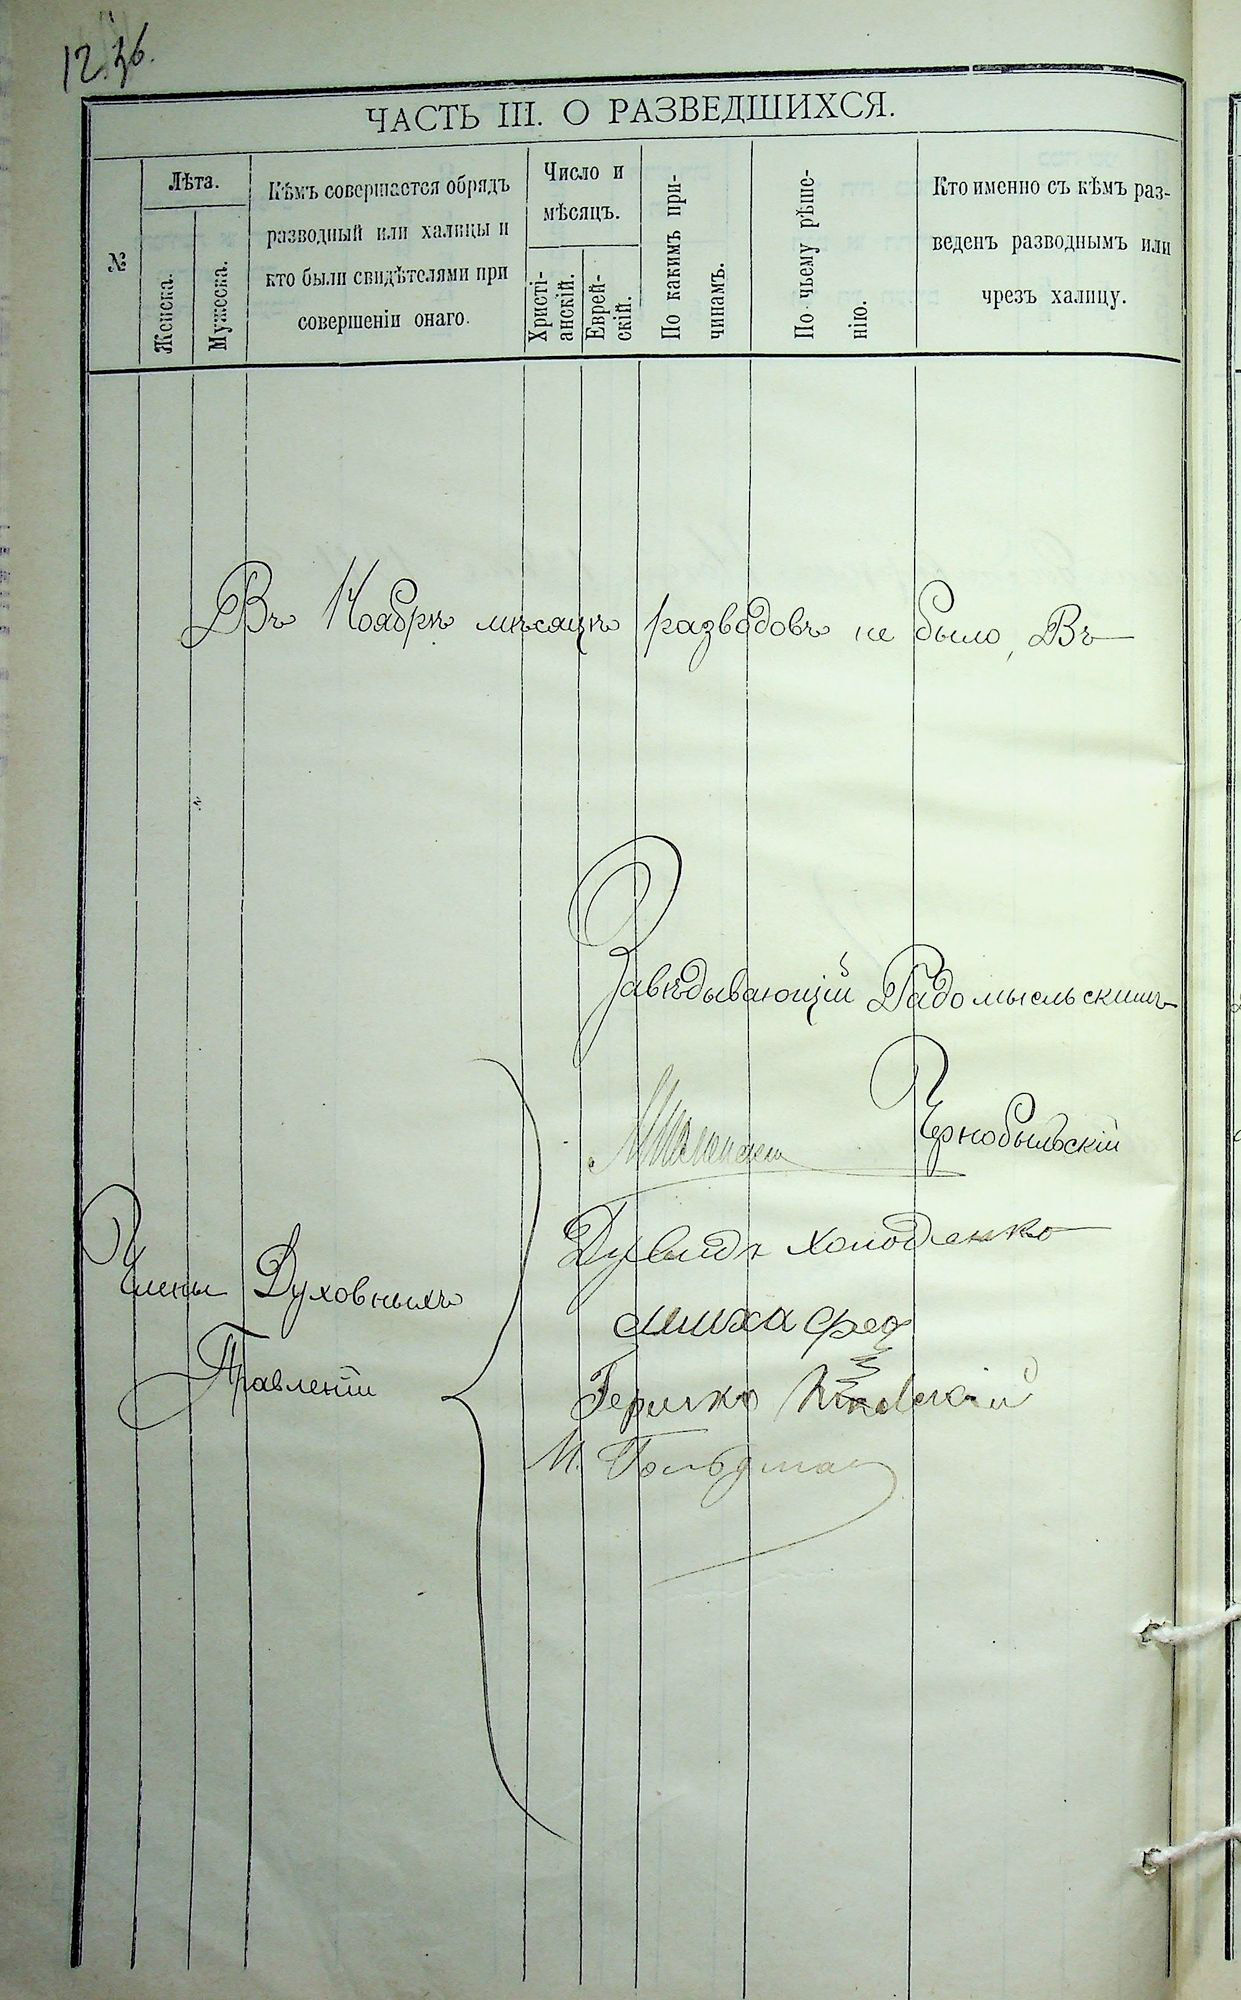 ЧАСТЬ III. О РАЗВЕДШИХСЯ.
№
Лѣта.
Женска.
Мужеска.
Кѣмъ совершается обрядъ
разводный или халицы и
кто были свидѣтелями при
совершеніи онаго.
Число и
мѣсяцъ.
Христі-
анскій.
Еврей-
скій.
По какимъ при-
чинамъ.
По чьему рѣше-
нію.
Кто именно съ кѣмъ раз-
веденъ разводнымъ или
чрезъ халицу.
Въ Ноябрѣ мѣсяцѣ разводовъ не было, Въ
Завѣдывающій Радомысльскимъ
Чернобыльскій
Члены Духовныхъ
Правленій
Дувидъ Холоденко
Гершко
М. Гольдман